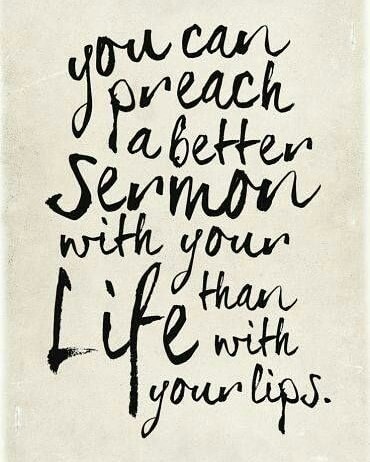 you can
preach
a better
Sermon
with your
Life than
with
your lips.